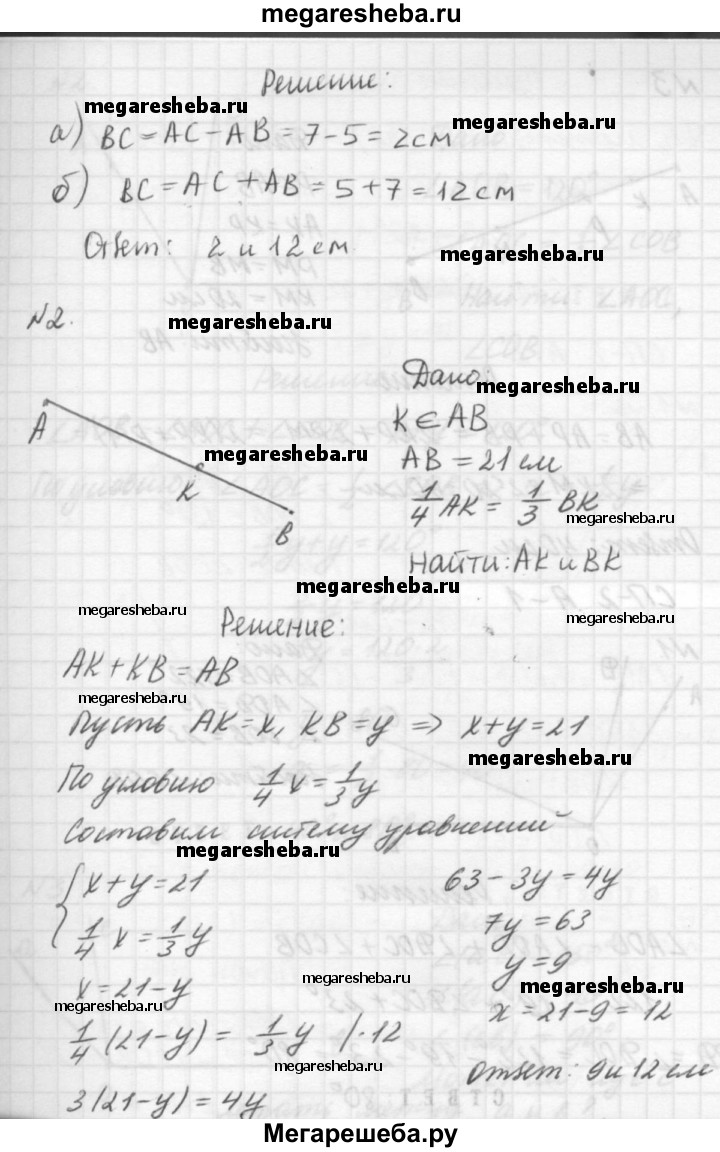 megaresheba.ru
Решение:
megaresheba.ru
megaresheba.ru
а) BC = AC - AB = 7 - 5 = 2 см
б) BC = AC + AB = 5 + 7 = 12 см
Ответ: 2 и 12 см
megaresheba.ru
№2.
megaresheba.ru
Дано:
megaresheba.ru
A
K
B
K ∈ AB
megaresheba.ru
AB = 21 см
1/4 AK = 1/3 BK
megaresheba.ru
Найти: AK и BK
megaresheba.ru
megaresheba.ru
megaresheba.ru
Решение:
AK + KB = AB
megaresheba.ru
Пусть AK = x, KB = y ⇒ x + y = 21
megaresheba.ru
По условию 1/4 x = 1/3 y
Составим систему уравнений
megaresheba.ru
{ x + y = 21
1/4 x = 1/3 y
x = 21 - y
megaresheba.ru
megaresheba.ru
1/4 (21 - y) = 1/3 y /·12
megaresheba.ru
3(21 - y) = 4y
63 - 3y = 4y
7y = 63
y = 9
megaresheba.ru
x = 21 - 9 = 12
Ответ: 9 и 12 см
Мегарешеба.ру